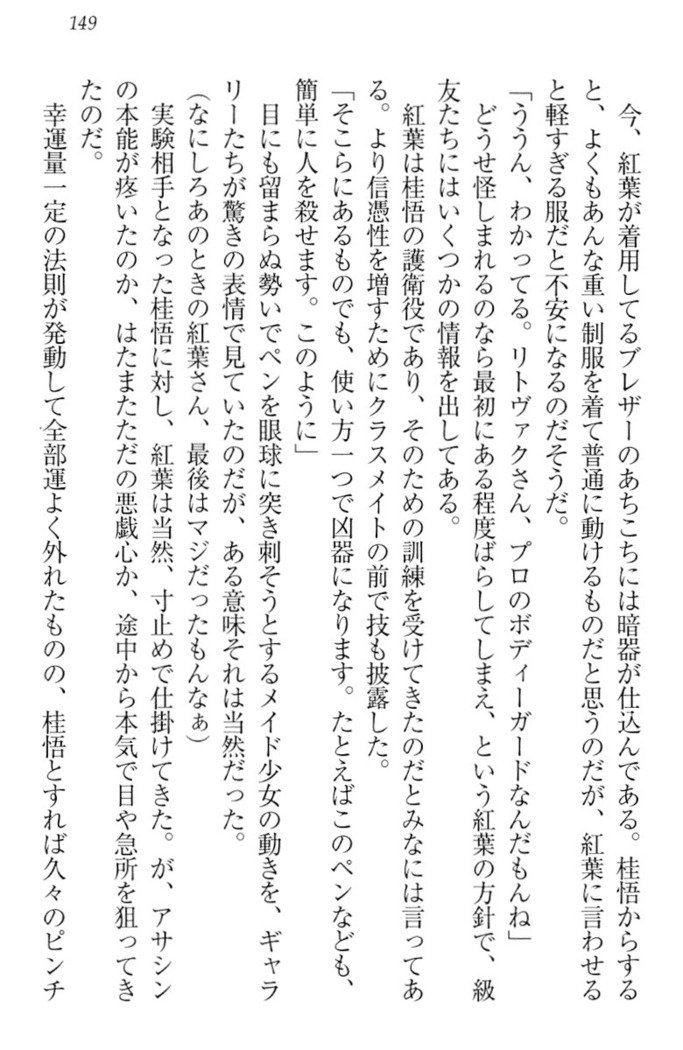 149
今、紅葉が着用してるブレザーのあちこちには暗器が仕込んである。桂悟からする
と、よくもあんな重い制服を着て普通に動けるものだと思うのだが、紅葉に言わせる
と軽すぎる服だと不安になるのだそうだ。
「ううん、わかってる。リトヴァクさん、プロのボディーガードなんだもんね」
どうせ怪しまれるのなら最初にある程度ばらしてしまえ、という紅葉の方針で、級
友たちにはいくつかの情報を出してある。
紅葉は桂悟の護衛役であり、そのための訓練を受けてきたのだとみなには言ってあ
る。より信憑性を増すためにクラスメイトの前で技も披露した。
「そこらにあるものでも、使い方一つで凶器になります。たとえばこのペンなども、
簡単に人を殺せます。このように」
目にも留まらぬ勢いでペンを眼球に突き刺そうとするメイド少女の動きを、ギャラ
リーたちが驚きの表情で見ていたのだが、ある意味それは当然だった。
(なにしろあのときの紅葉さん、最後はマジだったもんなぁ)
実験相手となった桂悟に対し、紅葉は当然、寸止めで仕掛けてきた。が、アサシン
の本能が疼いたのか、はたまたただの悪戯心か、途中から本気で目や急所を狙ってき
たのだ。
幸運量一定の法則が発動して全部運よく外れたものの、桂悟とすれば久々のピンチ